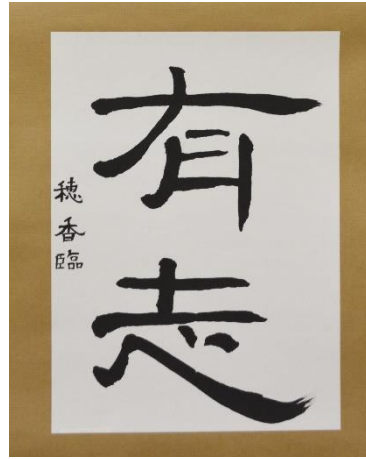 有志
穂香臨